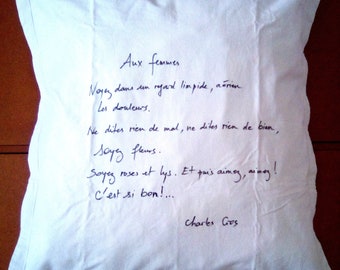 Aux femmes
Noyez dans un regard limpide, aérien
Les douleurs.
Ne dites rien de mal, ne dites rien de bien,
Soyez fleurs.
Soyez roses et lys. Et puis aimez, aimez !
C'est si bon!...
Charles Cros